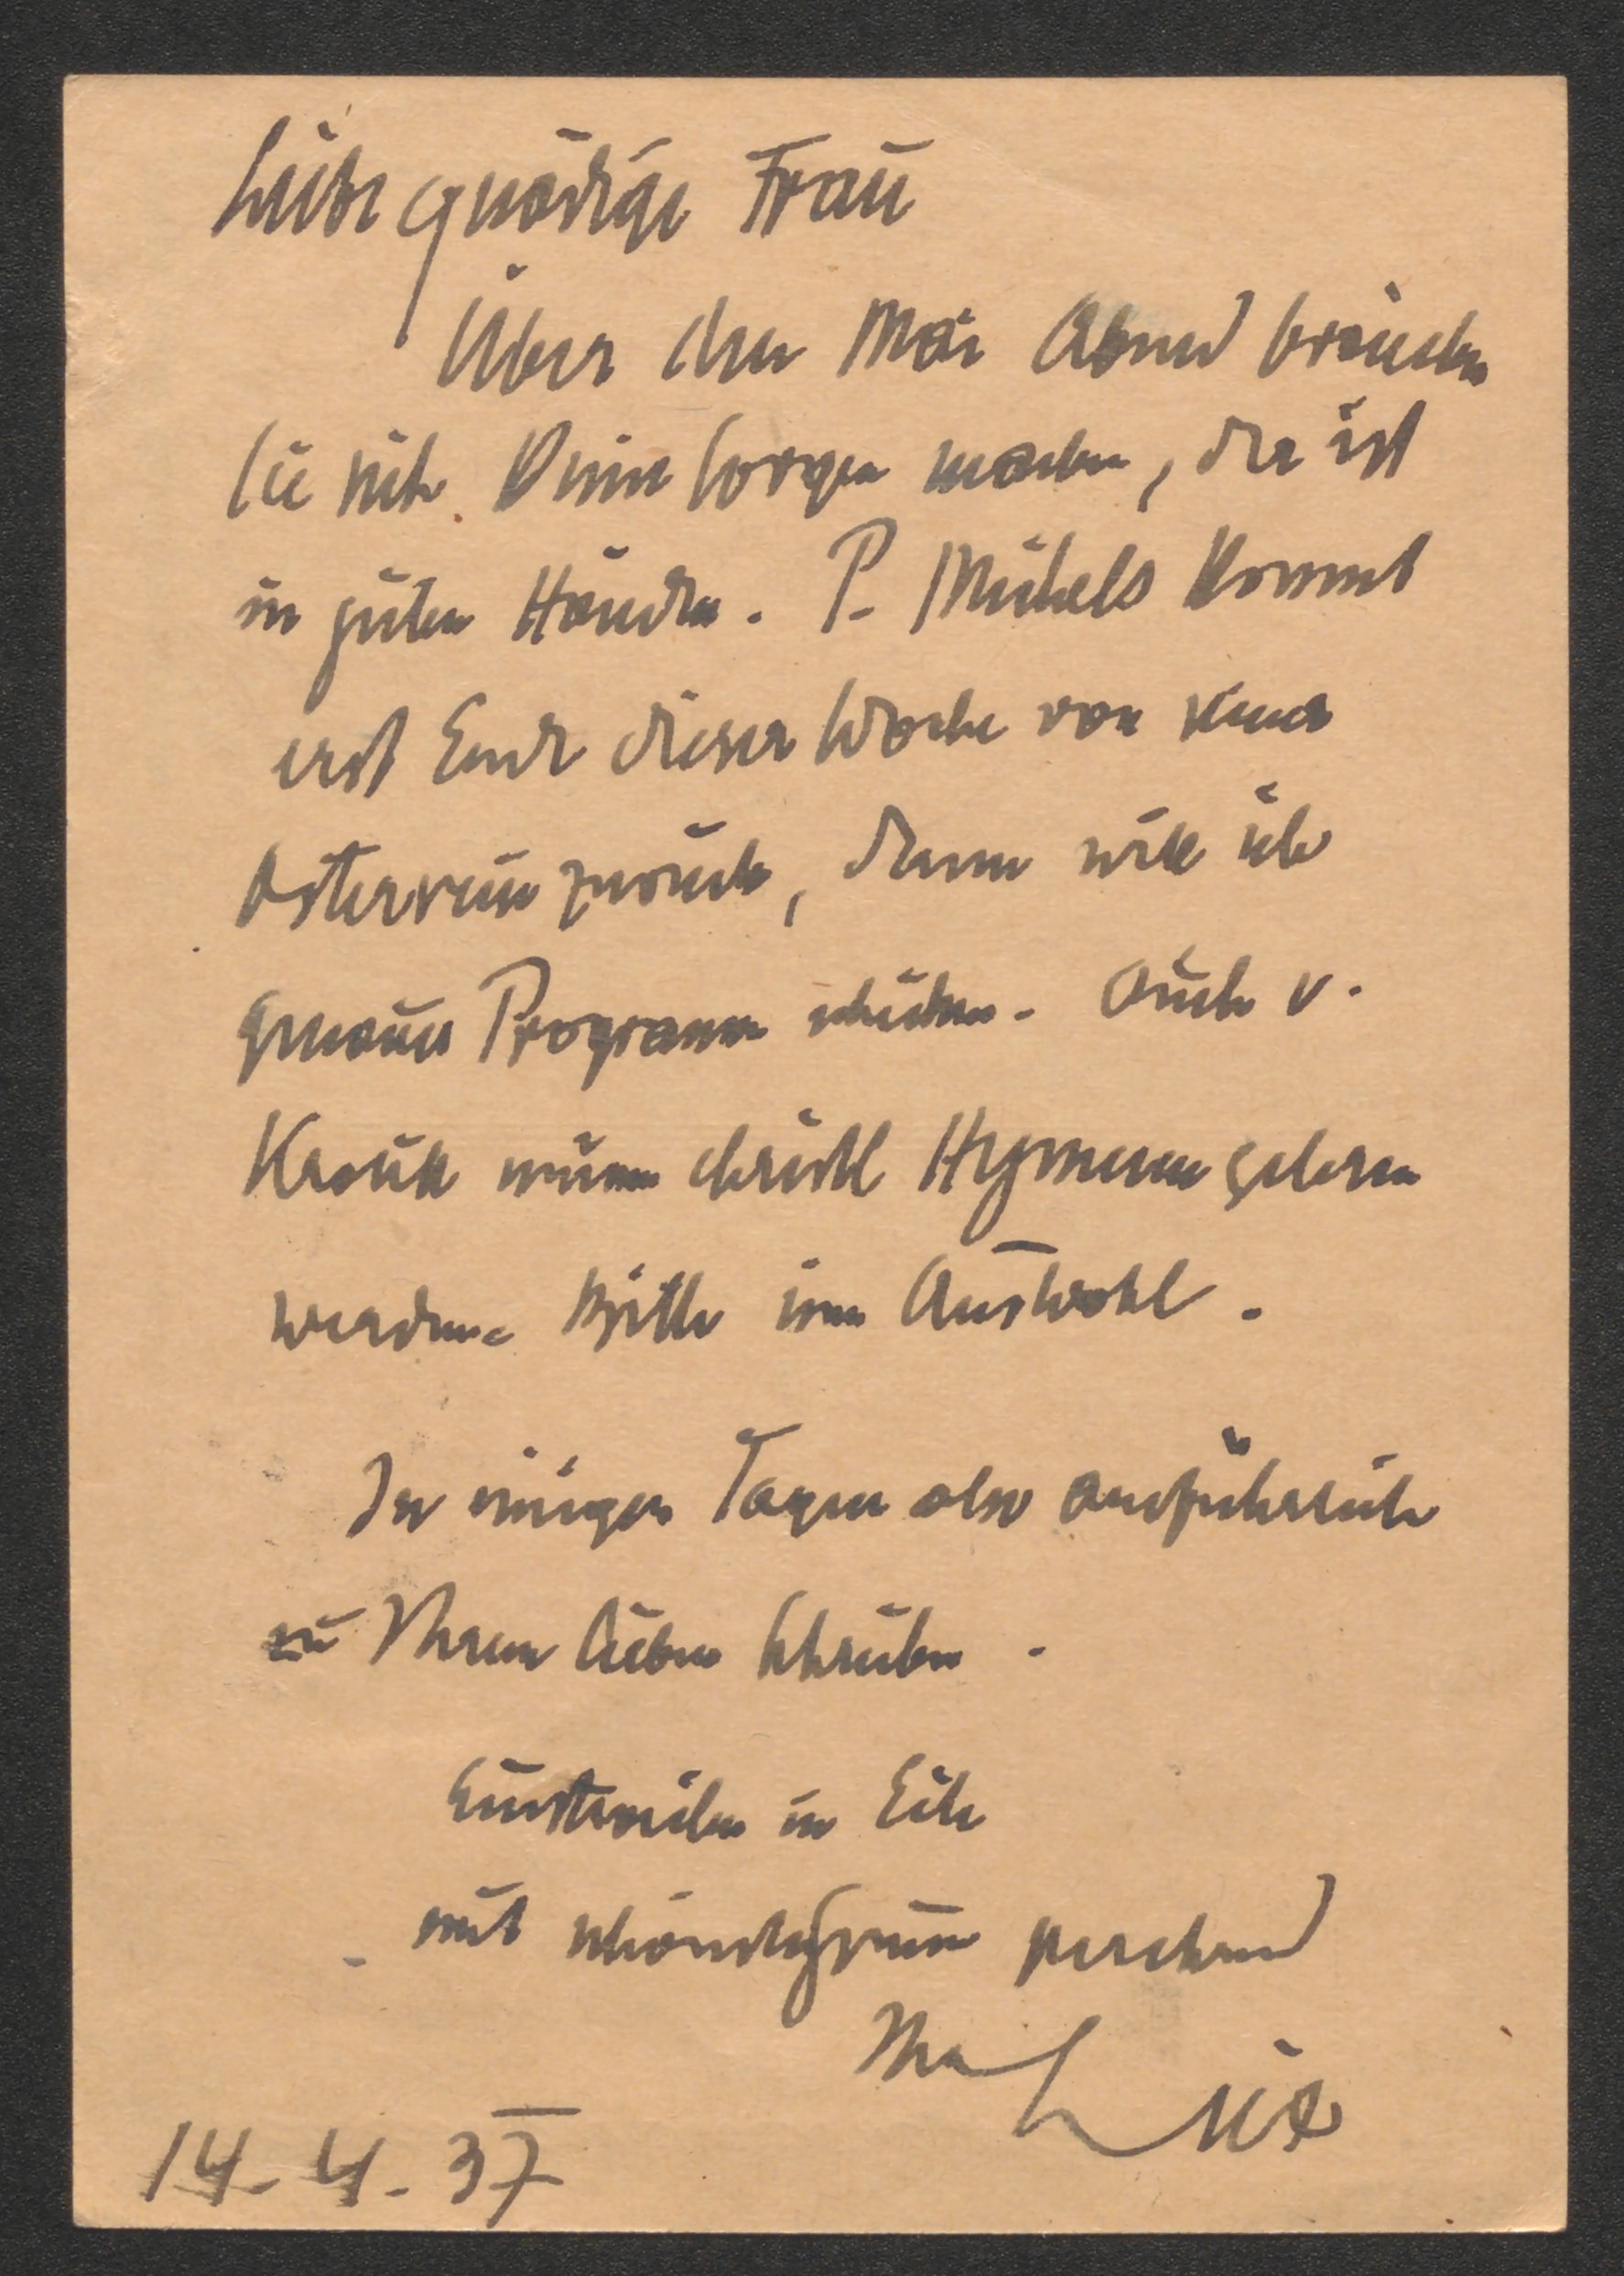 Liebe gnädige Frau
Über den Mai Abend brauchen
Sie sich keine Sorgen machen, der ist
in guten Händen. P. Michels kommt
erst Ende dieser Woche von seiner
Osterreise zurück, dann will ich
genaues Programm schicken. Auch v.
müssen christl Hymnen gelesen
werden. Bitte um Auswahl.
In einigen Tagen also ausführlich
zu Ihrem lieben Schreiben.
Einstweilen in Eile
mit schönsten Grüssen
Ihr
14.4.37